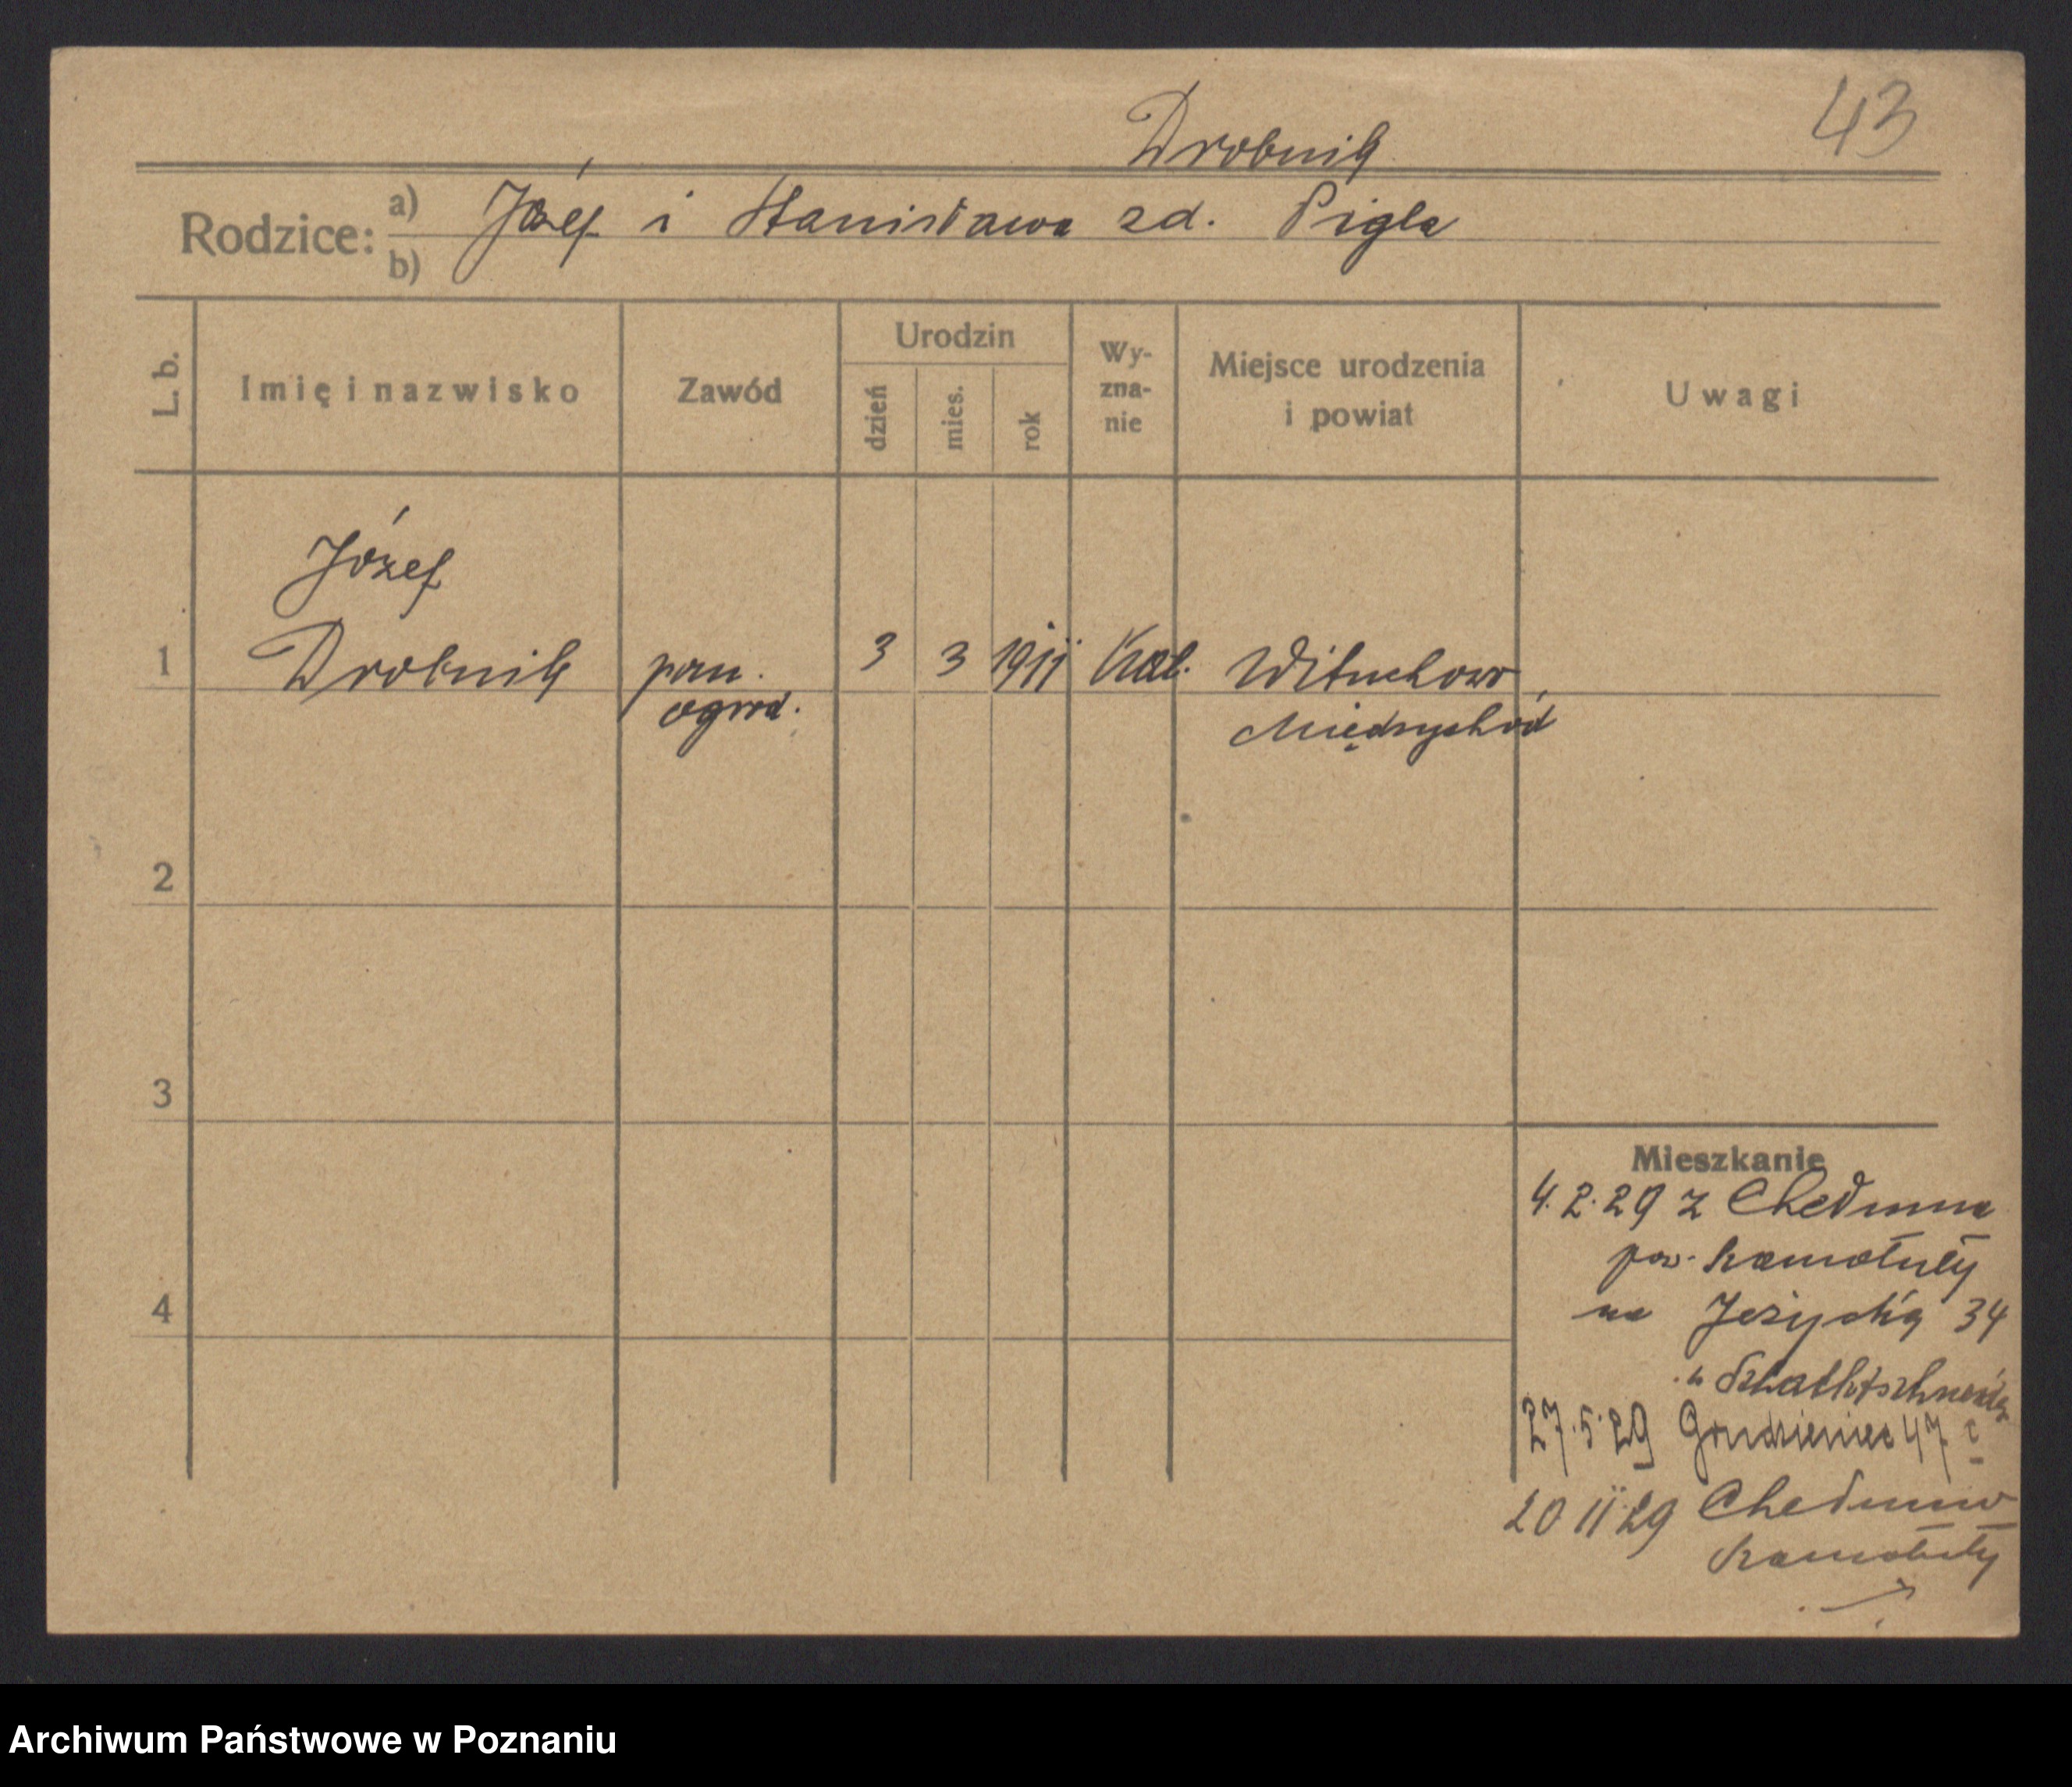 43
Drobnik
Rodzice: a) Józef i Stanisława zd. Pigla
b)
L. b.
Imię i nazwisko
Zawód
Urodzin
dzień
mies.
rok
Wy-
zna-
nie
Miejsce urodzenia
i powiat
Uwagi
Józef
1 Drobnik pom. 3 3 1911 Kat. Wituchowo,
ogrod. Międzychód
2
3
4
Mieszkanie
4.2.29 z Chełmna
pow. Szamotuły
na Jeżycką 34
27.5.29 Grudzieniec 47
20 11 29 Chełmno
Szamotuły
Archiwum Państwowe w Poznaniu